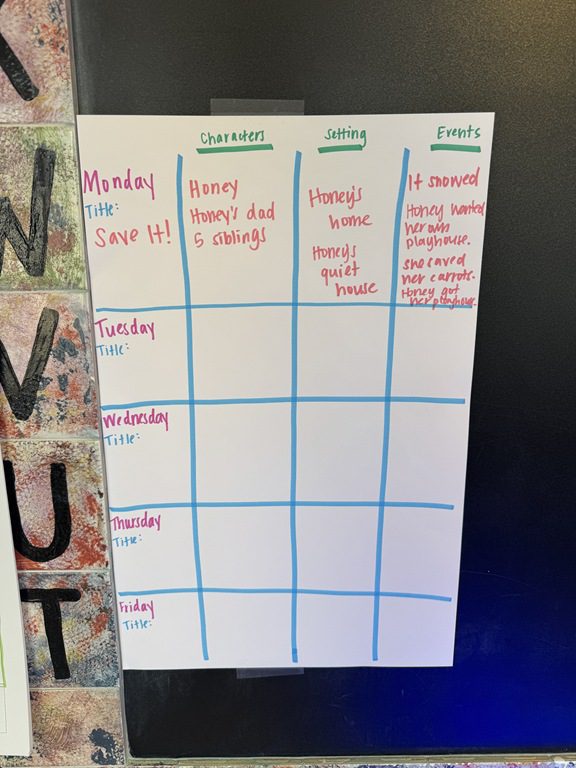 Characters
Setting
Events
Monday
Title:
Save It!
Honey
Honey's dad
5 siblings
Honey's
home
Honey's
quiet
house
It snowed
Honey wanted
her own
playhouse.
she saved
her carrots.
Honey got
her playhouse.
Tuesday
Title:
Wednesday
Title:
Thursday
Title:
Friday
Title:
N
V
U
T